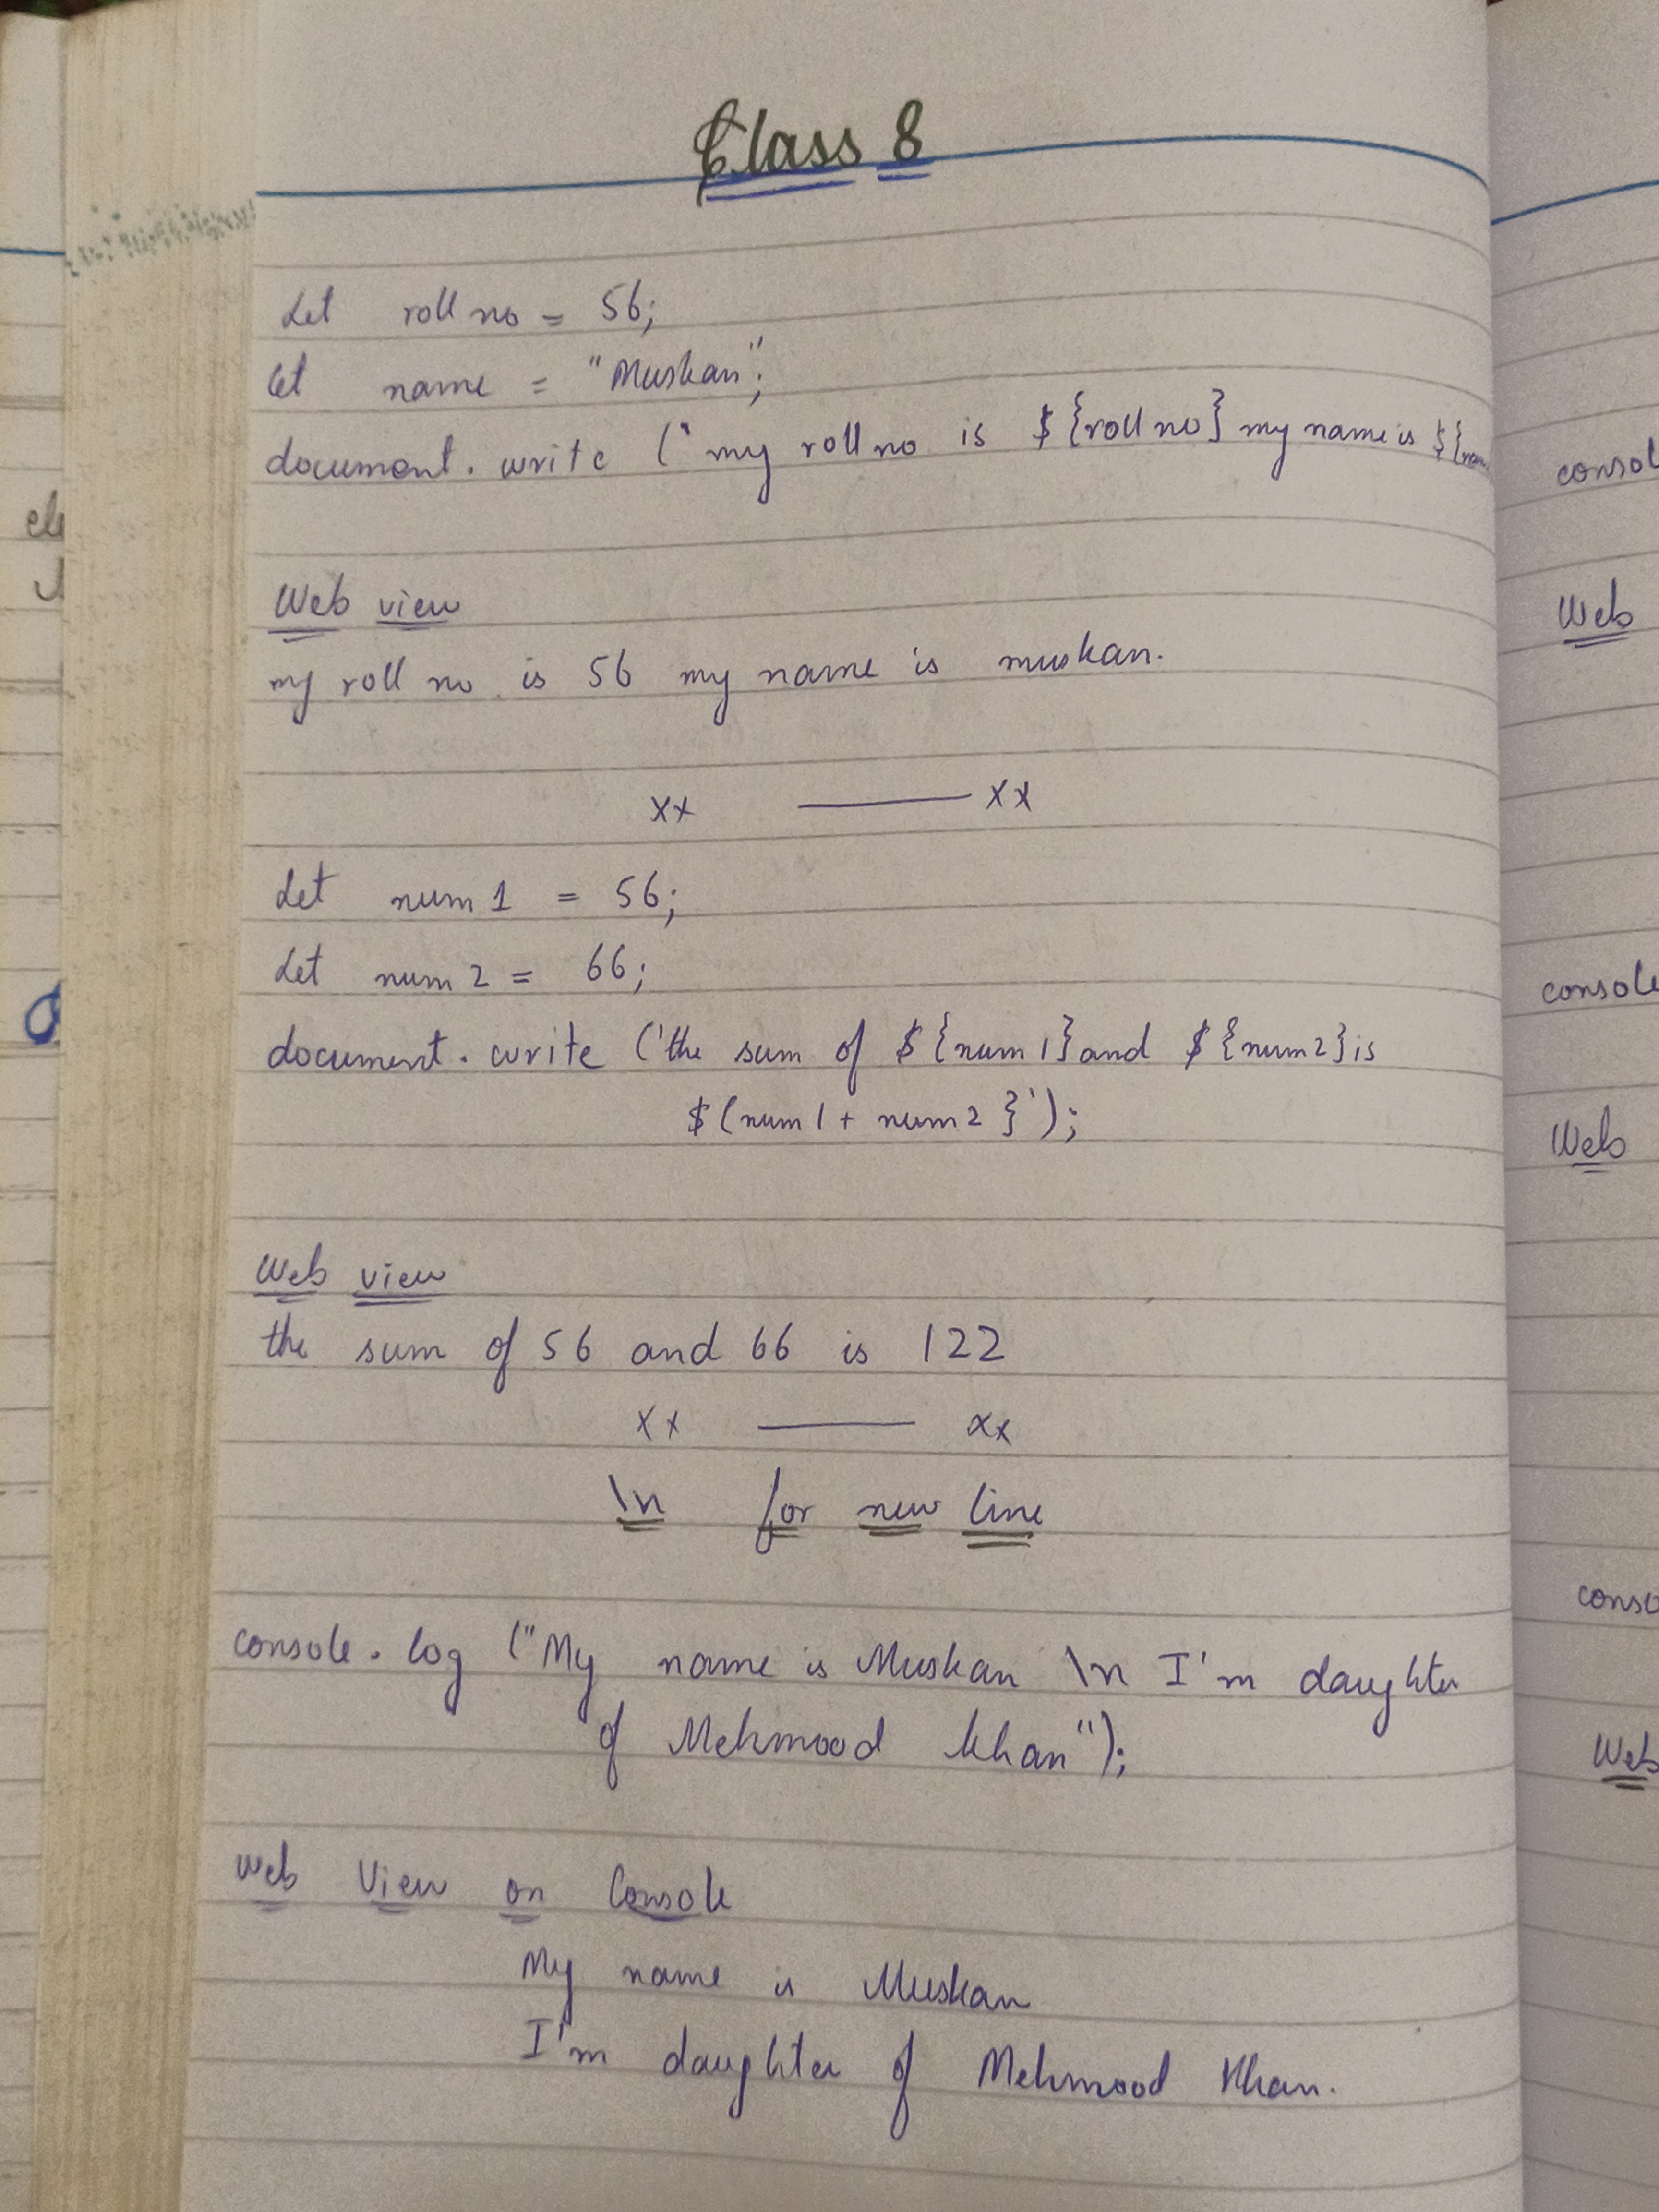 Class 8
Let roll no = 56;
let name = "Muskan";
document. write (` my roll no is ${roll no} my name is ${nam
Web view
my roll no. is 56 my name is muskan.
xx ——— xx
Let num 1 = 56;
Let num 2 = 66;
document. write ('the sum of ${num 1} and ${num 2} is
$(num 1 + num 2 }');
Web view
the sum of 56 and 66 is 122
xx ——— xx
\n for new line
console. log ("My name is Muskan \n I'm daughter
of Mehmood khan");
Web View on Console
My name is Muskan
I'm daughter of Mehmood Khan.
consol
Web
console
Web
conso
Web